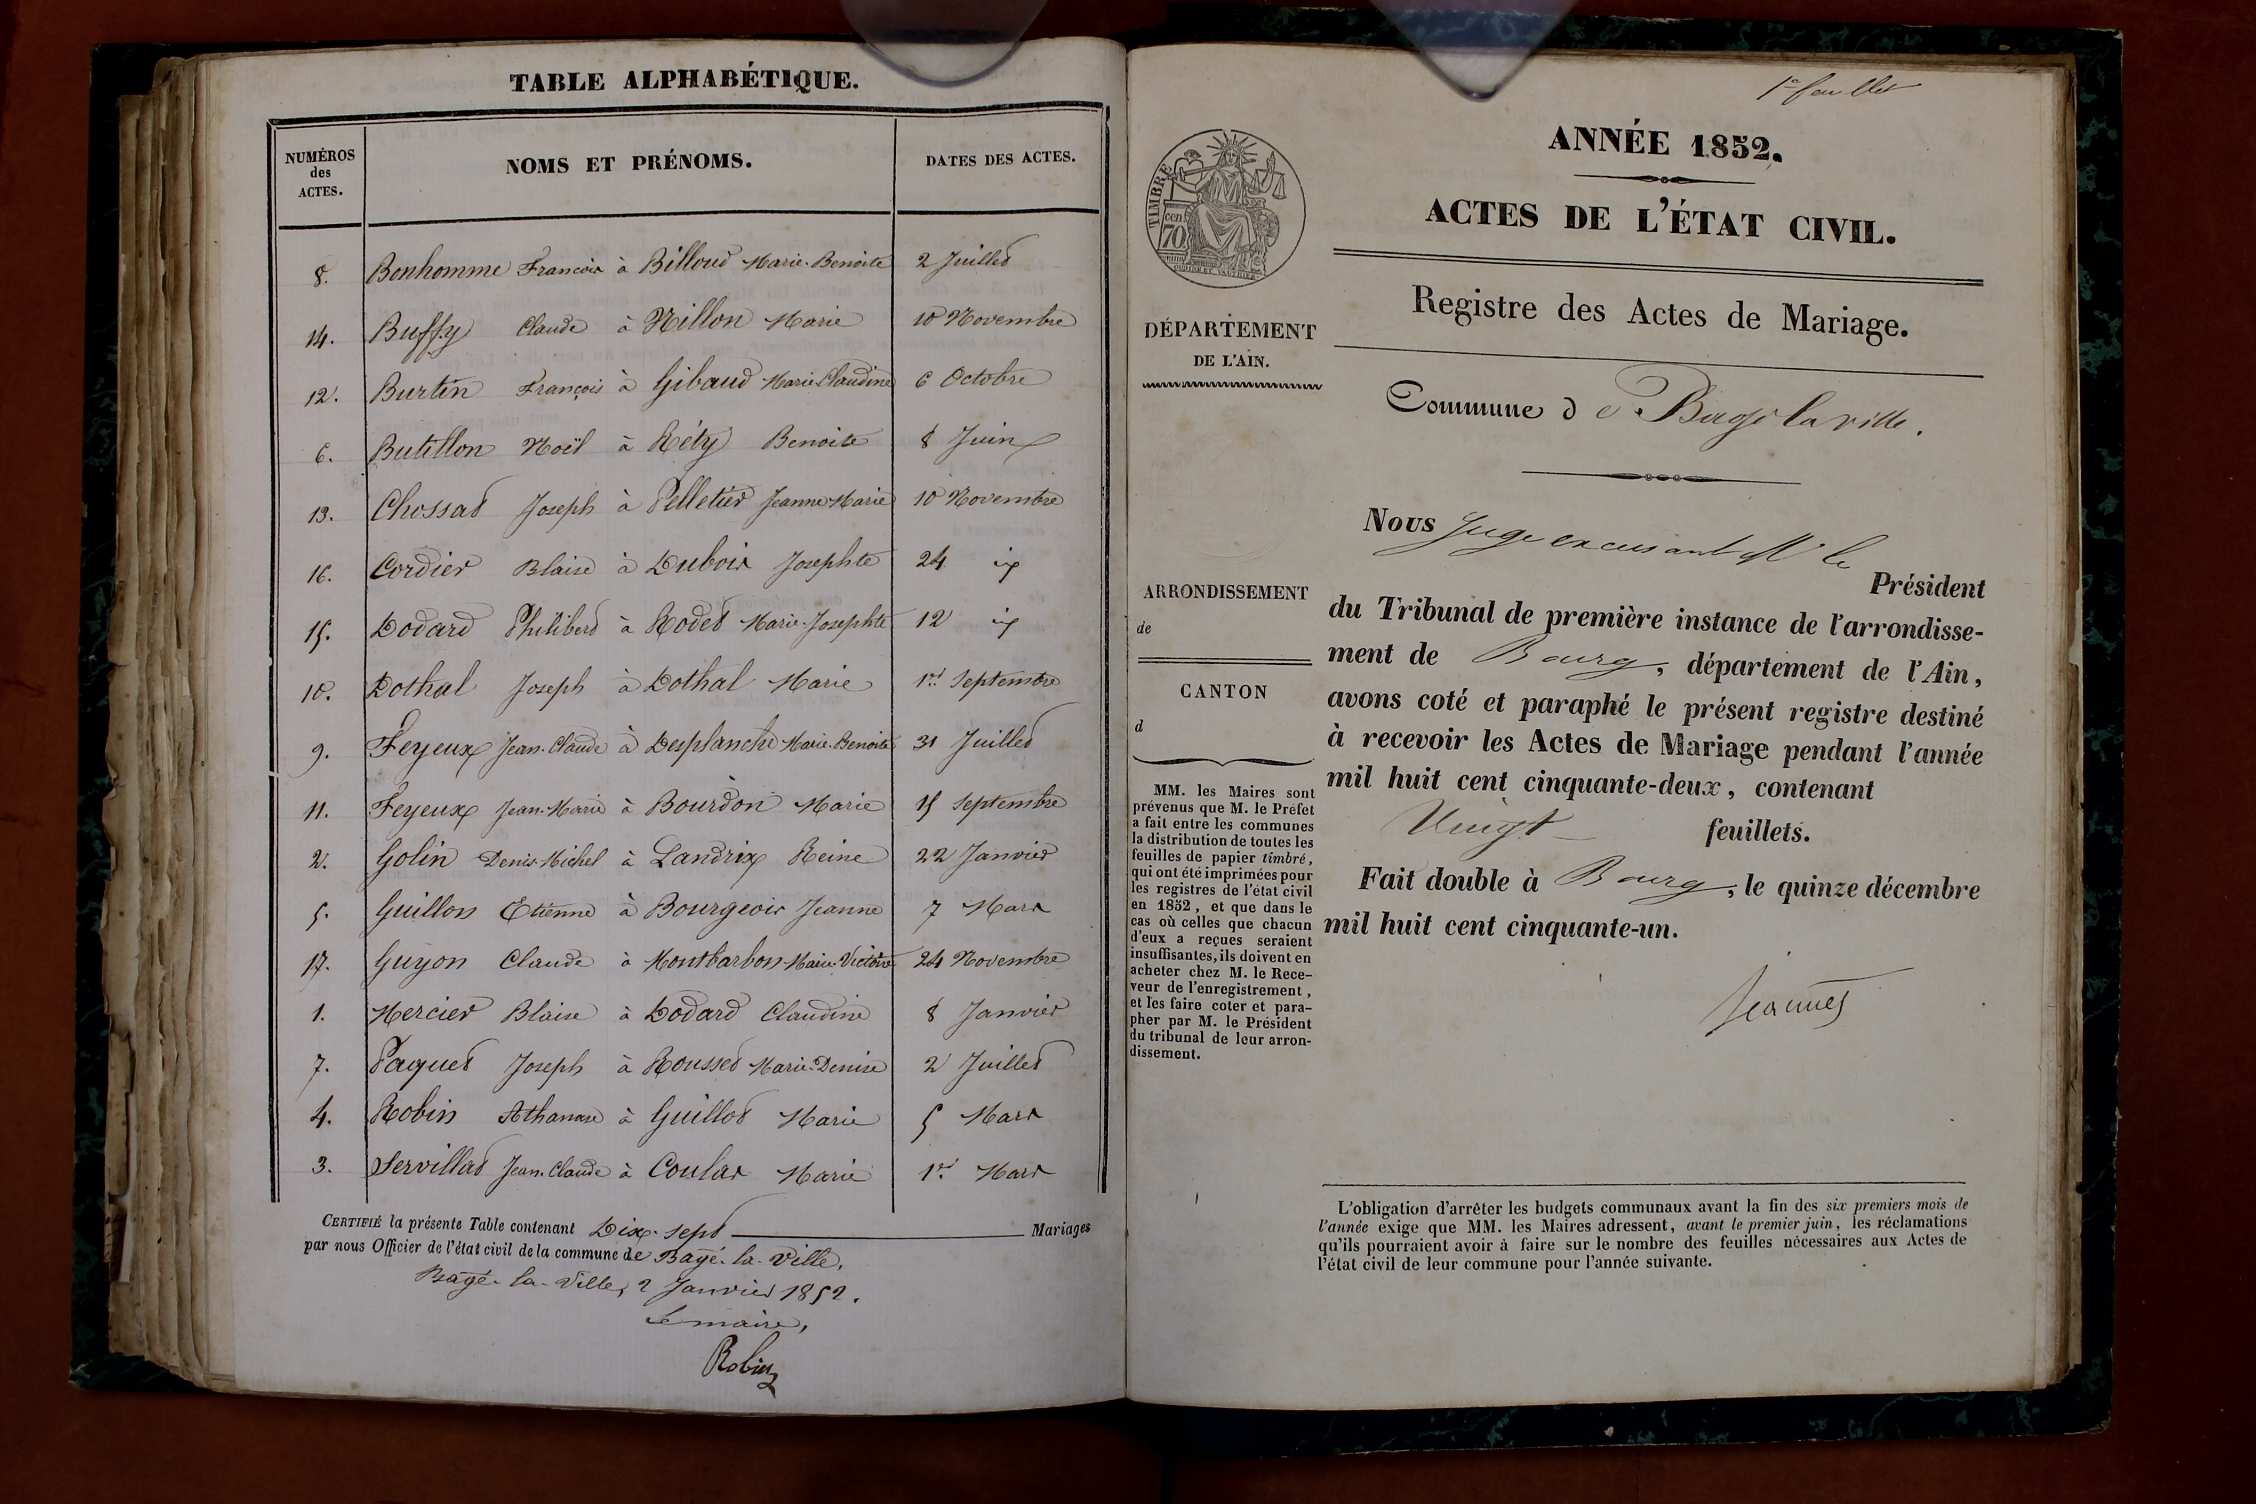 TABLE ALPHABÉTIQUE.
NUMÉROS des ACTES. NOMS ET PRÉNOMS. DATES DES ACTES.
8. Bonhomme François à Billoud Marie-Benoite 2 Juillet
14. Buffy Claude à Nillon Marie 10 Novembre
12. Burtin François à Gibaud Marie-Claudine 6 Octobre
6. Butillon Noël à Réty Benoite 8 Juin
13. Chossat Joseph à Pelletier Jeanne Marie 10 Novembre
16. Cordier Blaise à Dubois Josephte 24
15. Dodard Philibert à Rodet Marie-Josephte 12
10. Dothal Joseph à Dothal Marie 1er Septembre
9. Feyeux Jean-Claude à Desplanche Marie-Benoite 31 Juillet
11. Feyeux Jean-Marie à Bourdon Marie 15 Septembre
2. Golin Denis-Michel à Landrix Reine 22 Janvier
5. Guillon Etienne à Bourgeois Jeanne 7 Mars
17. Guyon Claude à Montbarbon Marie-Victoire 24 Novembre
1. Mercier Blaise à Dodard Claudine 8 Janvier
7. Paquet Joseph à Rousset Marie-Denise 2 Juillet
4. Robin Athanase à Guillot Marie 5 Mars
3. Servillat Jean-Claude à Coulas Marie 1er Mars
CERTIFIÉ la présente Table contenant Dix-sept Mariages
par nous Officier de l'état civil de la commune de Bagé-la-Ville,
Bagé-la-Ville, 2 Janvier 1852.
Le maire,
Robin
1er feuillet
ANNÉE 1852.
ACTES DE L'ÉTAT CIVIL.
Registre des Actes de Mariage.
Commune de Bagé la ville.
TIMBRE
70 cen.
DÉPARTEMENT
DE L'AIN.
ARRONDISSEMENT
de
CANTON
d
MM. les Maires sont
prévenus que M. le Préfet
a fait entre les communes
la distribution de toutes les
feuilles de papier timbré,
qui ont été imprimées pour
les registres de l'état civil
en 1852, et que dans le
cas où celles que chacun
d'eux a reçues seraient
insuffisantes, ils doivent en
acheter chez M. le Rece-
veur de l'enregistrement,
et les faire coter et para-
pher par M. le Président
du tribunal de leur arron-
dissement.
Nous Juge excusant Mr le
Président
du Tribunal de première instance de l'arrondisse-
ment de Bourg, département de l'Ain,
avons coté et paraphé le présent registre destiné
à recevoir les Actes de Mariage pendant l'année
mil huit cent cinquante-deux, contenant
Vingt feuillets.
Fait double à Bourg, le quinze décembre
mil huit cent cinquante-un.
L'obligation d'arrêter les budgets communaux avant la fin des six premiers mois de
l'année exige que MM. les Maires adressent, avant le premier juin, les réclamations
qu'ils pourraient avoir à faire sur le nombre des feuilles nécessaires aux Actes de
l'état civil de leur commune pour l'année suivante.